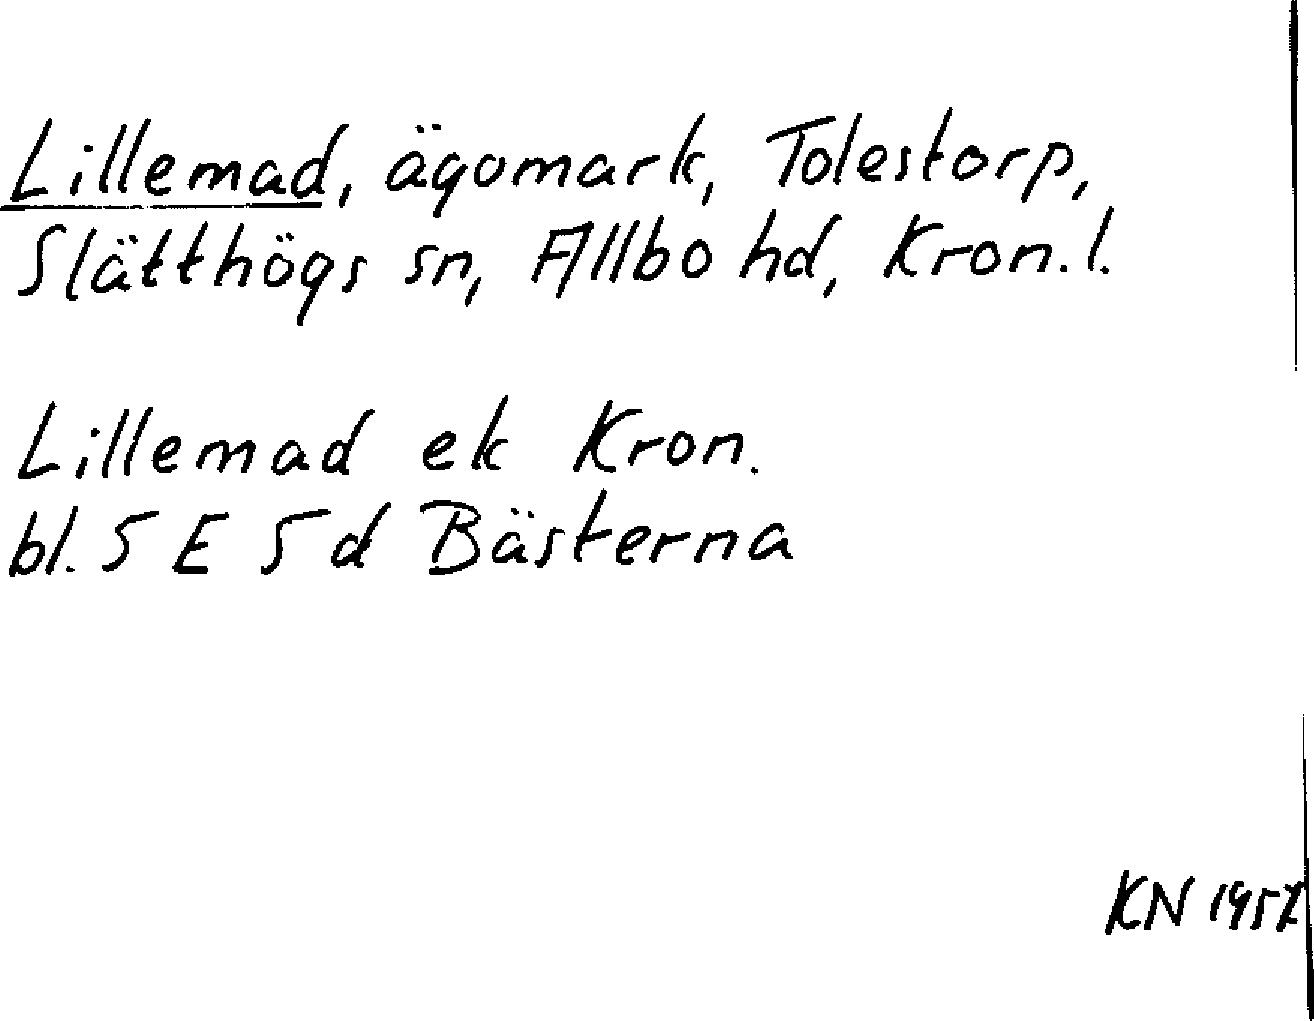 Lillemad, ägomark, Tolestorp,
Slätthögs sn, Allbo hd, Kron. l.
Lillemad ek Kron.
bl. 5 E 5 d Bästerna
KN 1957